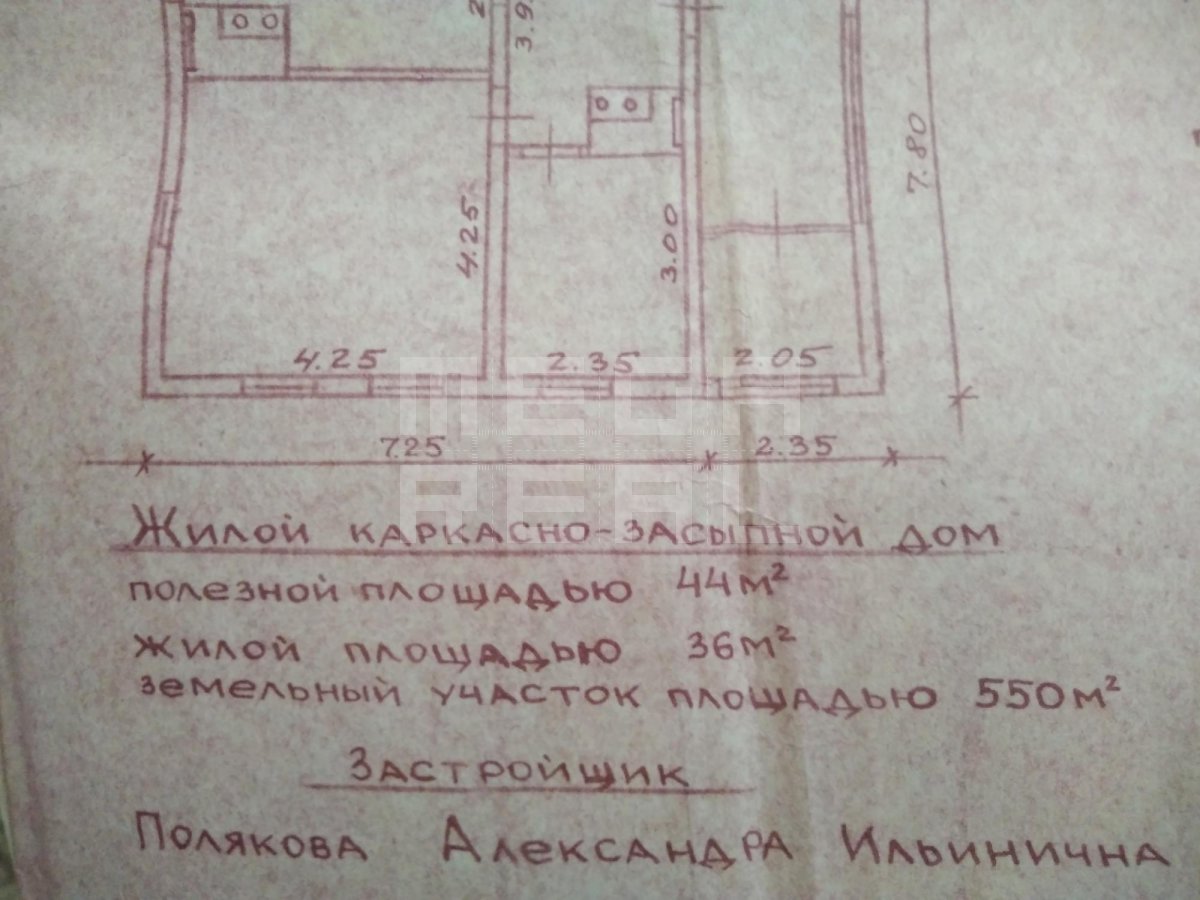 3.9
7.80
4.25
3.00
4.25 2.35 2.05
7.25 2.35
MEGA
REAL
Жилой каркасно-засыпной дом
полезной площадью 44м²
жилой площадью 36м²
земельный участок площадью 550м²
Застройщик
Полякова Александра Ильинична